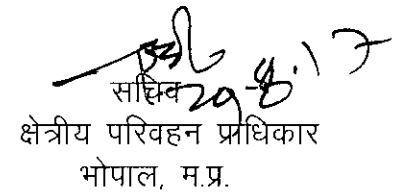 29-8-17
सचिव
क्षेत्रीय परिवहन प्राधिकार
भोपाल, म.प्र.